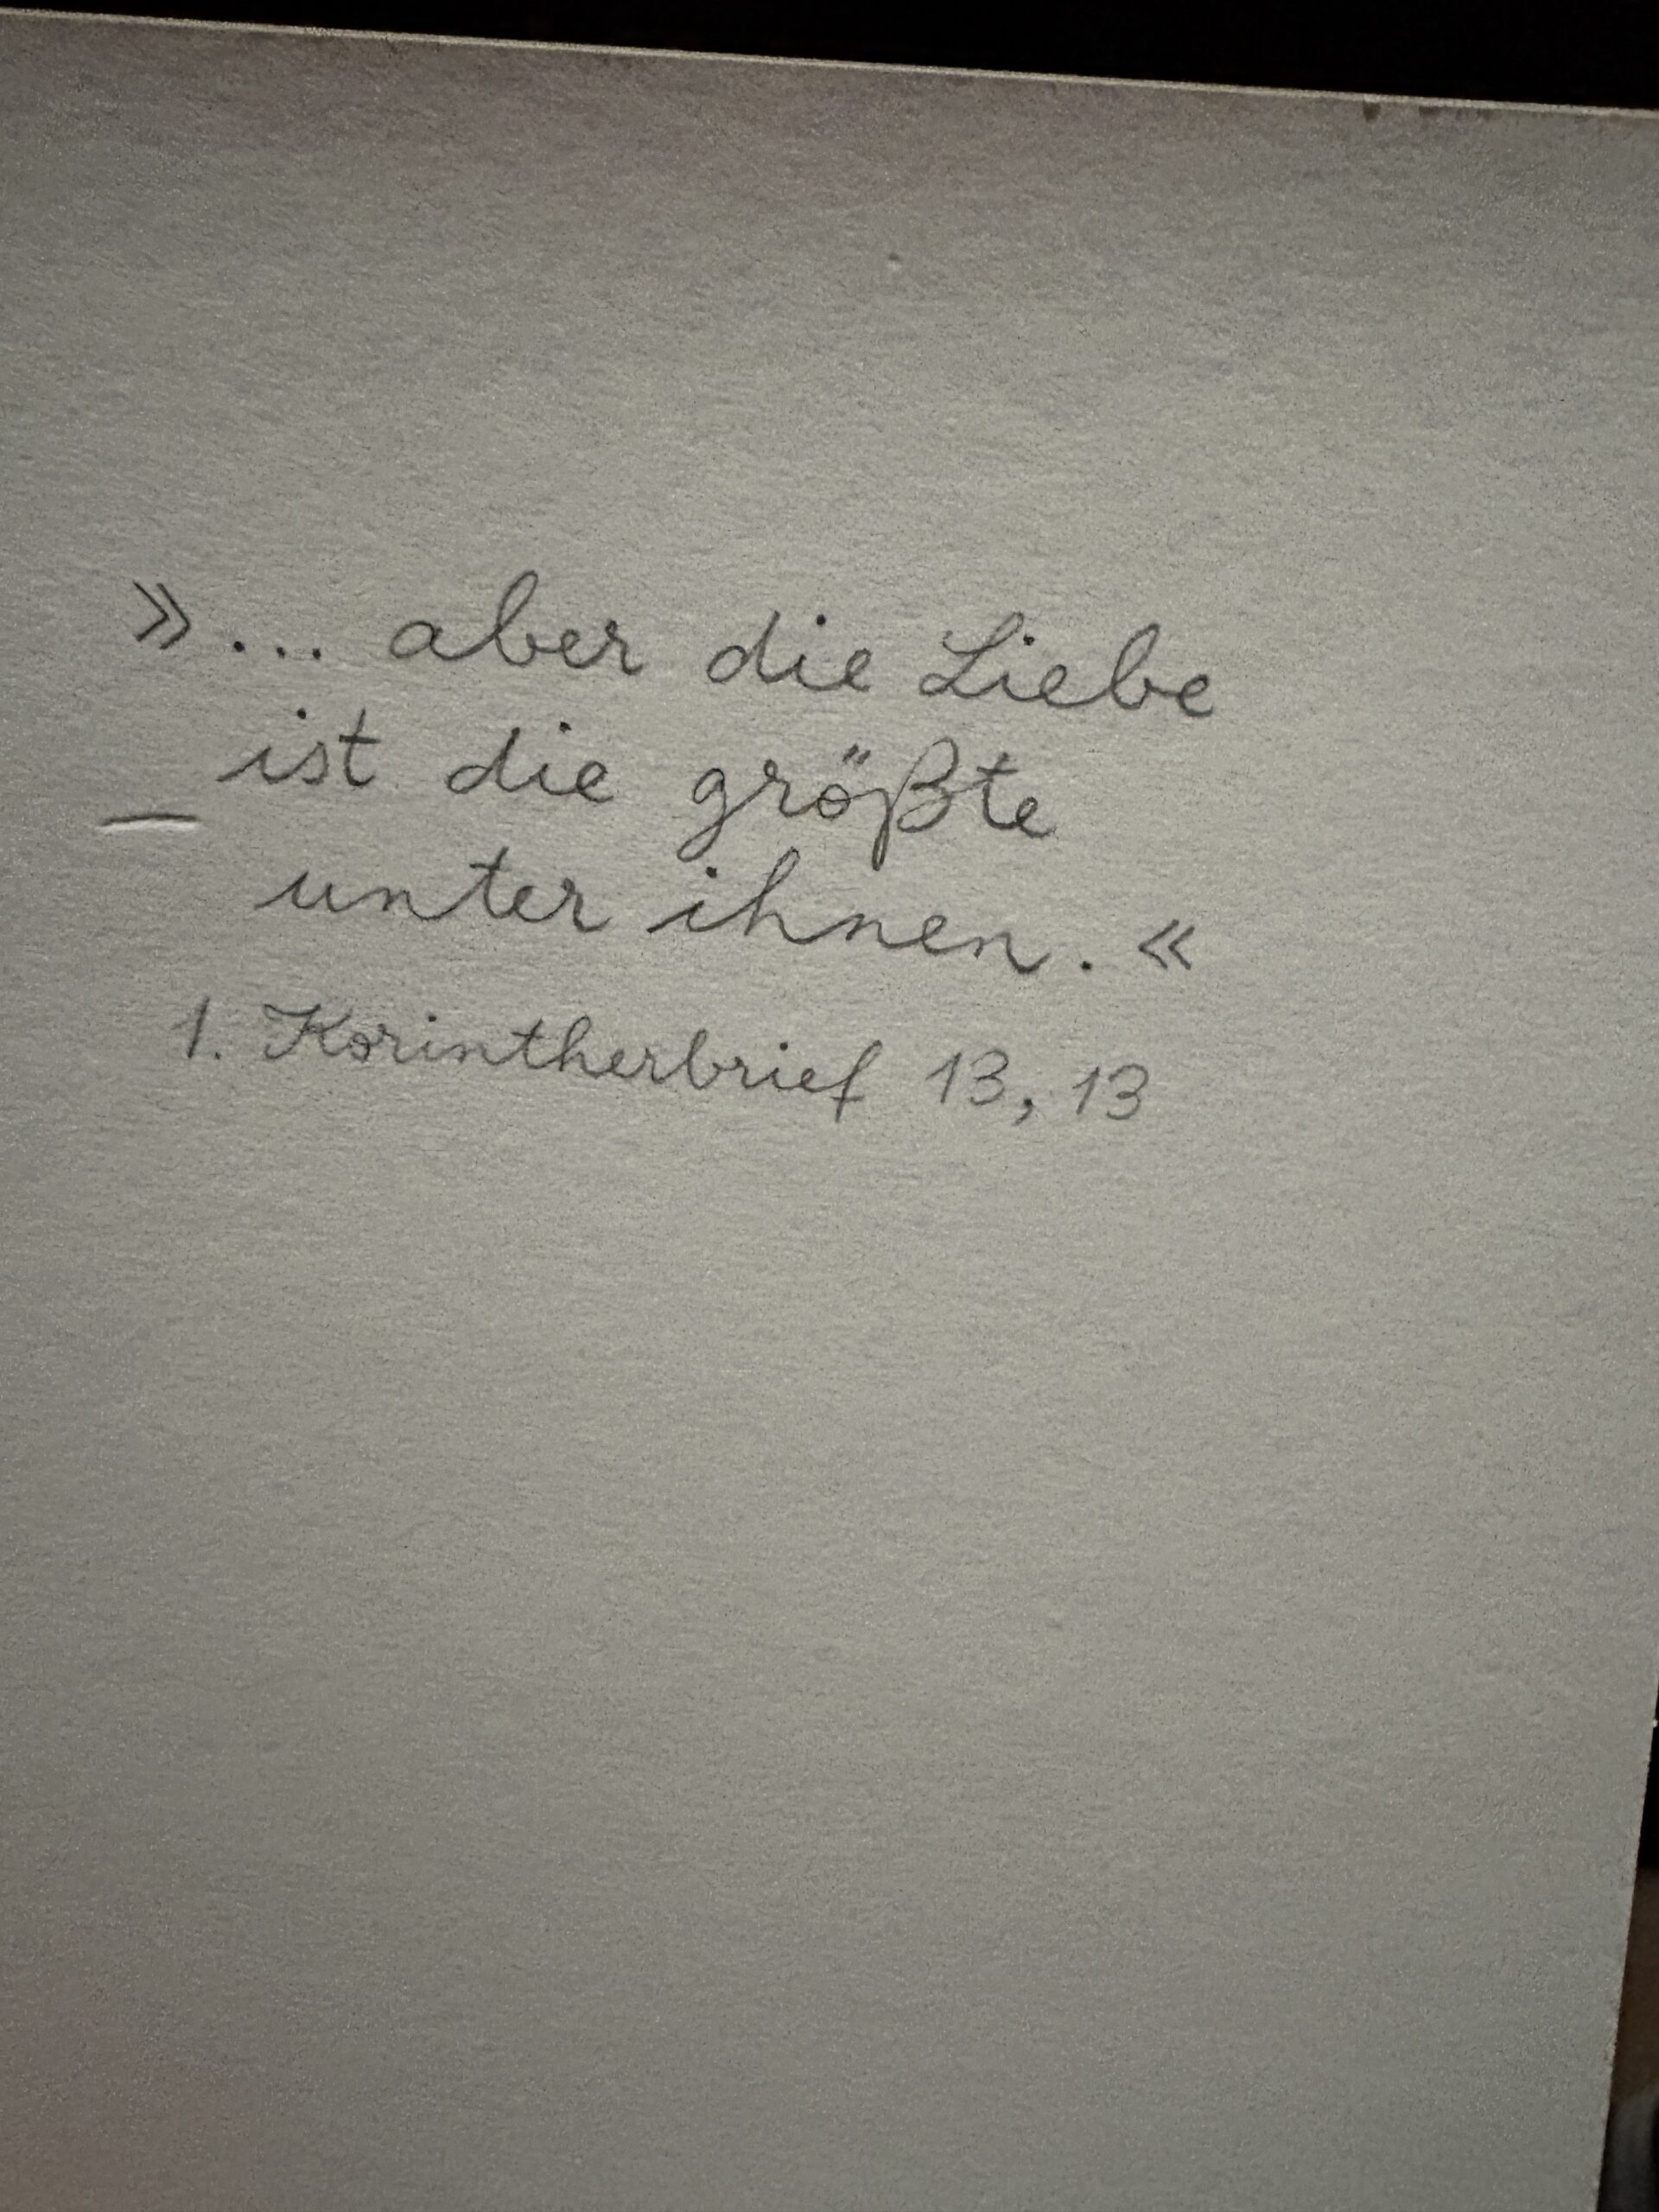 »... aber die Liebe
ist die größte
unter ihnen.«
1. Korintherbrief 13, 13